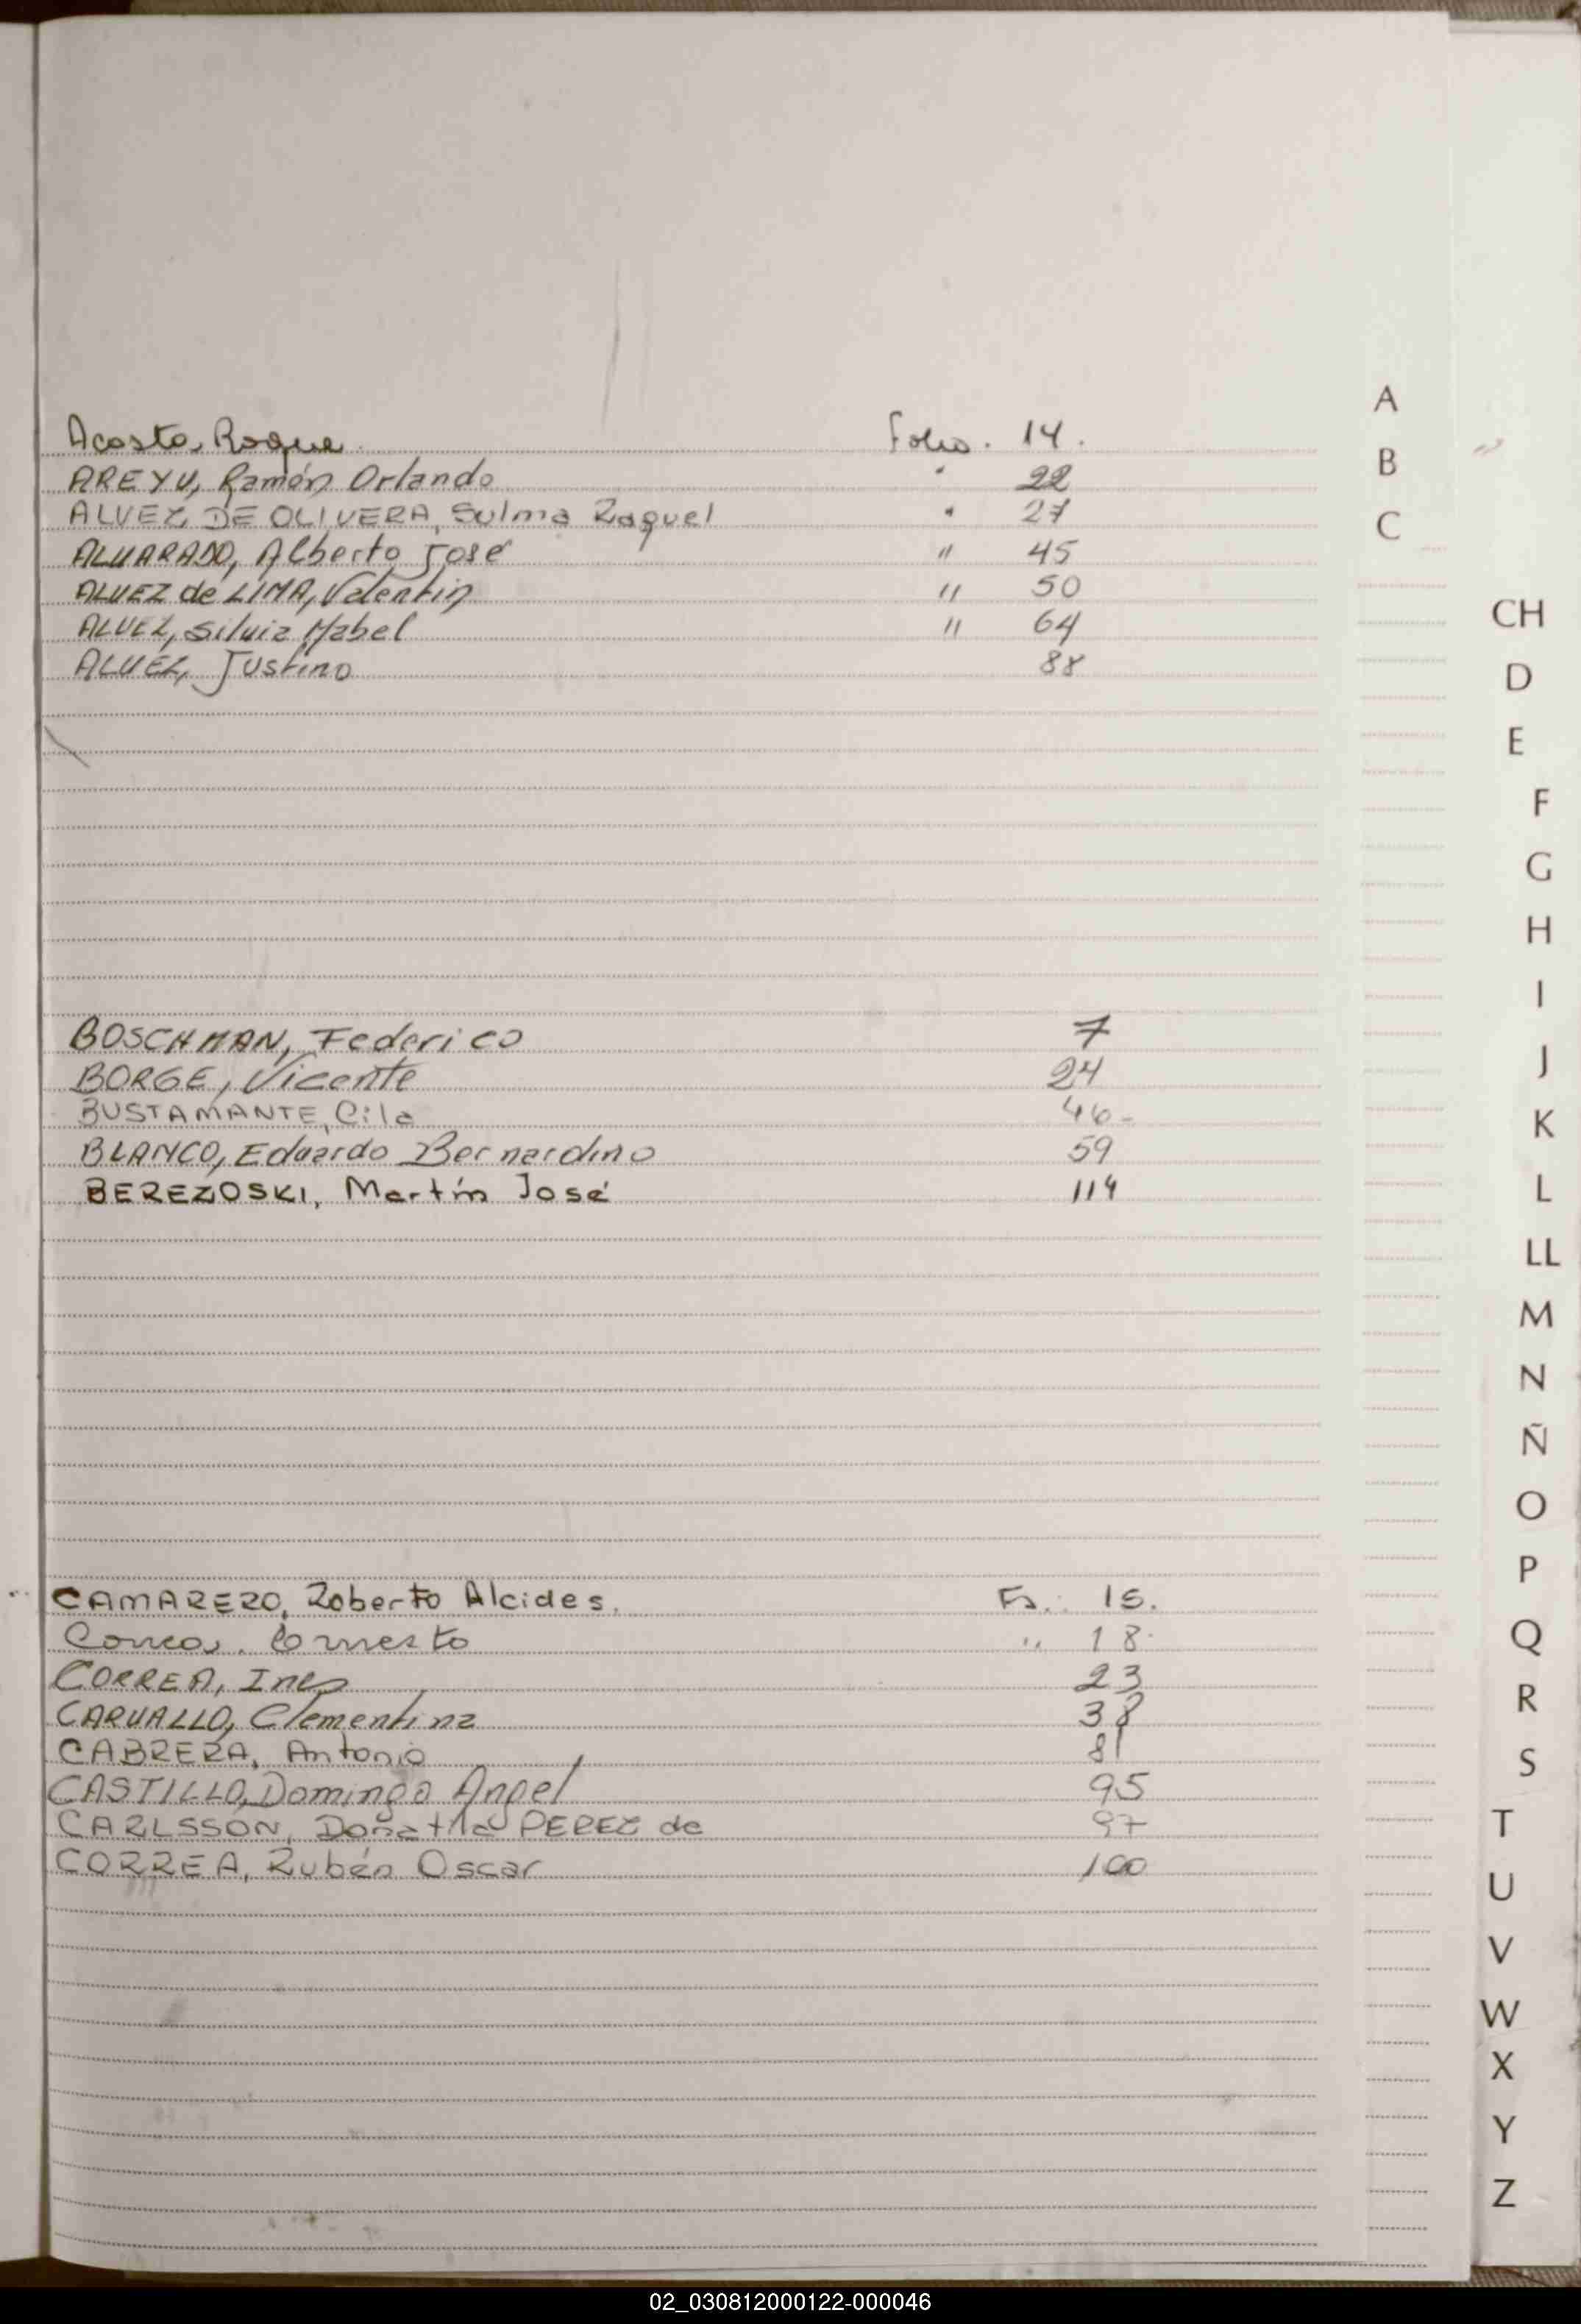 Acosta, Roque. Folio. 14.
AREYU, Ramón Orlando " 22
ALVEZ DE OLIVERA, Sulma Raquel " 27
ALVARADO, Alberto José " 45
ALVEZ de LIMA, Valentin " 50
ALVEZ, Silvia Mabel " 64
ALVEZ, Justino 88
BOSCHMAN, Federico 7
BORGE, Vicente 24
BUSTAMANTE, Cila 46-
BLANCO, Eduardo Bernardino 59
BEREZOSKI, Martín José 114
CAMARERO, Roberto Alcides. Fs. 15.
Correa, Ernesto " 18.
CORREA, Ines 23
CARVALLO, Clementina 38
CABRERA, Antonio 81
CASTILLO, Domingo Angel 95
CARLSSON, PEREZ de 97
CORREA, Rubén Oscar 100
A
B
C
CH
D
E
F
G
H
I
J
K
L
LL
M
N
Ñ
O
P
Q
R
S
T
U
V
W
X
Y
Z
02_030812000122-000046